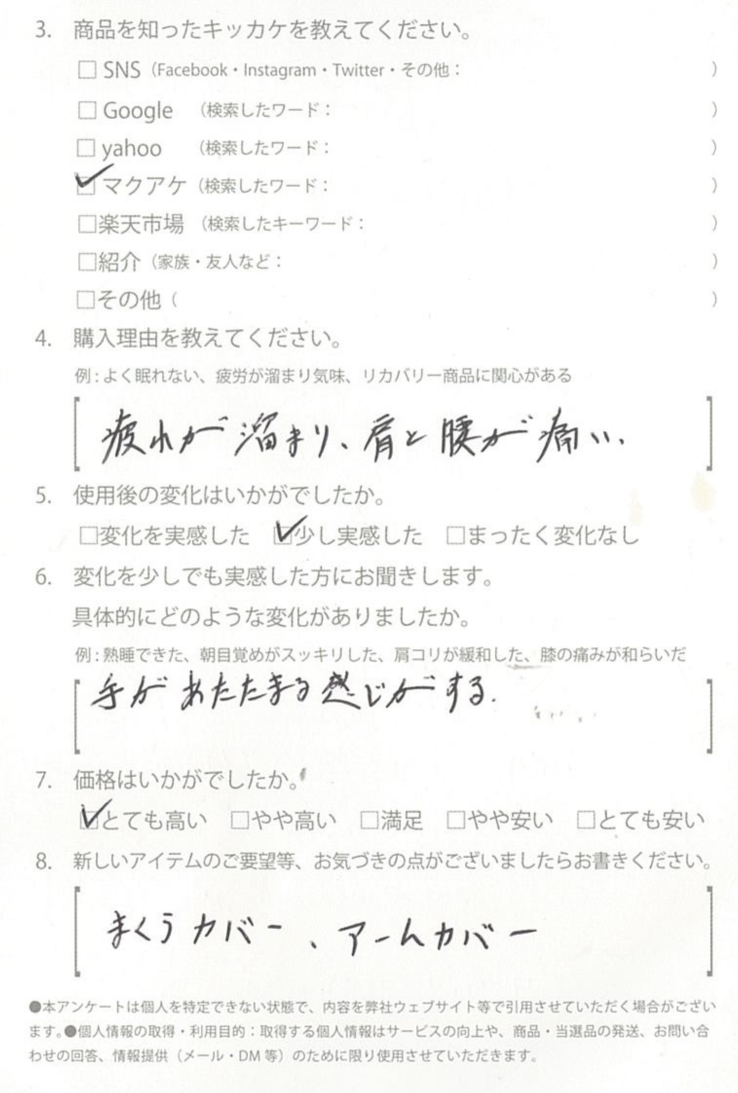 3. 商品を知ったキッカケを教えてください。
□ SNS（Facebook・Instagram・Twitter・その他： ）
□ Google （検索したワード： ）
□ yahoo （検索したワード： ）
☑ マクアケ（検索したワード： ）
□楽天市場（検索したキーワード： ）
□紹介（家族・友人など： ）
□その他（ ）
4. 購入理由を教えてください。
例：よく眠れない、疲労が溜まり気味、リカバリー商品に関心がある
疲れが溜まり、肩と腰が痛い、
5. 使用後の変化はいかがでしたか。
□変化を実感した ☑少し実感した □まったく変化なし
6. 変化を少しでも実感した方にお聞きします。
具体的にどのような変化がありましたか。
例：熟睡できた、朝目覚めがスッキリした、肩コリが緩和した、膝の痛みが和らいだ
手があたたまる感じがする.
7. 価格はいかがでしたか。
☑とても高い □やや高い □満足 □やや安い □とても安い
8. 新しいアイテムのご要望等、お気づきの点がございましたらお書きください。
まくらカバー、アームカバー
●本アンケートは個人を特定できない状態で、内容を弊社ウェブサイト等で引用させていただく場合がござい
ます。●個人情報の取得・利用目的：取得する個人情報はサービスの向上や、商品・当選品の発送、お問い合
わせの回答、情報提供（メール・DM 等）のために限り使用させていただきます。